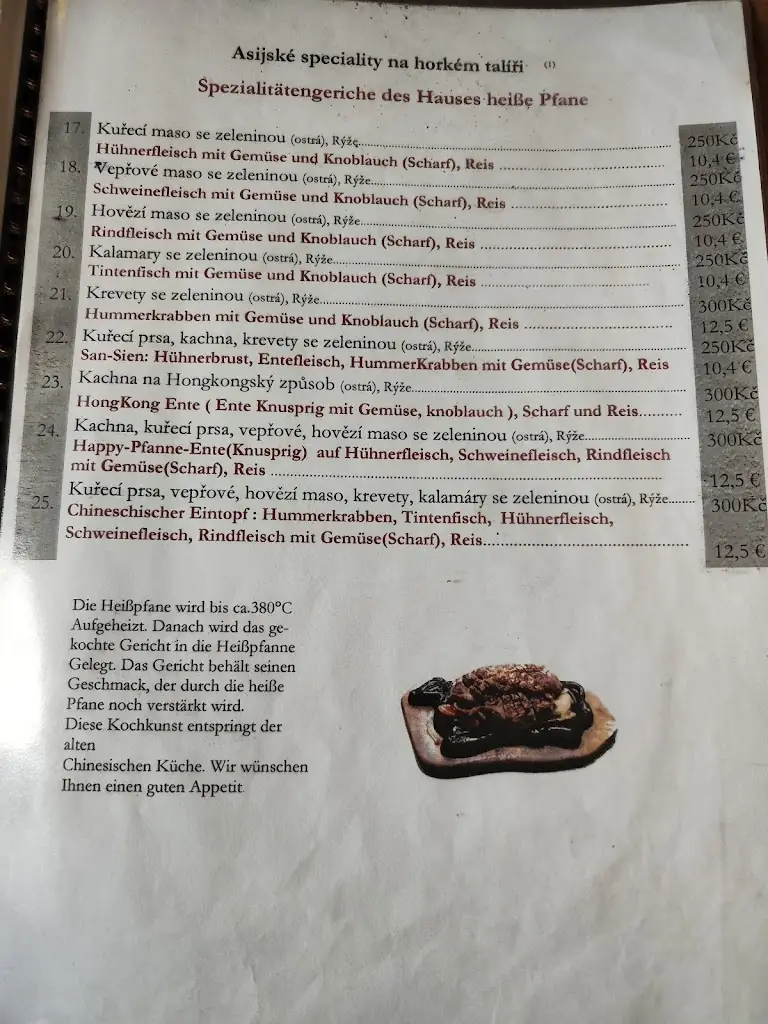 Asijské speciality na horkém talíři (1)
Spezialitätengeriche des Hauses heiße Pfane
17. Kuřecí maso se zeleninou (ostrá), Rýže 250Kč
Hühnerfleisch mit Gemüse und Knoblauch (Scharf), Reis 10,4 €
18. Vepřové maso se zeleninou (ostrá), Rýže 250Kč
Schweinefleisch mit Gemüse und Knoblauch (Scharf), Reis 10,4 €
19. Hovězí maso se zeleninou (ostrá), Rýže 250Kč
Rindfleisch mit Gemüse und Knoblauch (Scharf), Reis 10,4 €
20. Kalamary se zeleninou (ostrá), Rýže 250Kč
Tintenfisch mit Gemüse und Knoblauch (Scharf), Reis 10,4 €
21. Krevety se zeleninou (ostrá), Rýže 300Kč
Hummerkrabben mit Gemüse und Knoblauch (Scharf), Reis 12,5 €
22. Kuřecí prsa, kachna, krevety se zeleninou (ostrá), Rýže 250Kč
San-Sien: Hühnerbrust, Entefleisch, HummerKrabben mit Gemüse(Scharf), Reis 10,4 €
23. Kachna na Hongkongský způsob (ostrá), Rýže 300Kč
HongKong Ente ( Ente Knusprig mit Gemüse, knoblauch ), Scharf und Reis 12,5 €
24. Kachna, kuřecí prsa, vepřové, hovězí maso se zeleninou (ostrá), Rýže 300Kč
Happy-Pfanne-Ente(Knusprig) auf Hühnerfleisch, Schweinefleisch, Rindfleisch
mit Gemüse(Scharf), Reis 12,5 €
25. Kuřecí prsa, vepřové, hovězí maso, krevety, kalamáry se zeleninou (ostrá), Rýže 300Kč
Chineschischer Eintopf : Hummerkrabben, Tintenfisch, Hühnerfleisch,
Schweinefleisch, Rindfleisch mit Gemüse(Scharf), Reis 12,5 €
Die Heißpfane wird bis ca.380°C
Aufgeheizt. Danach wird das ge-
kochte Gericht in die Heißpfanne
Gelegt. Das Gericht behält seinen
Geschmack, der durch die heiße
Pfane noch verstärkt wird.
Diese Kochkunst entspringt der
alten
Chinesischen Küche. Wir wünschen
Ihnen einen guten Appetit